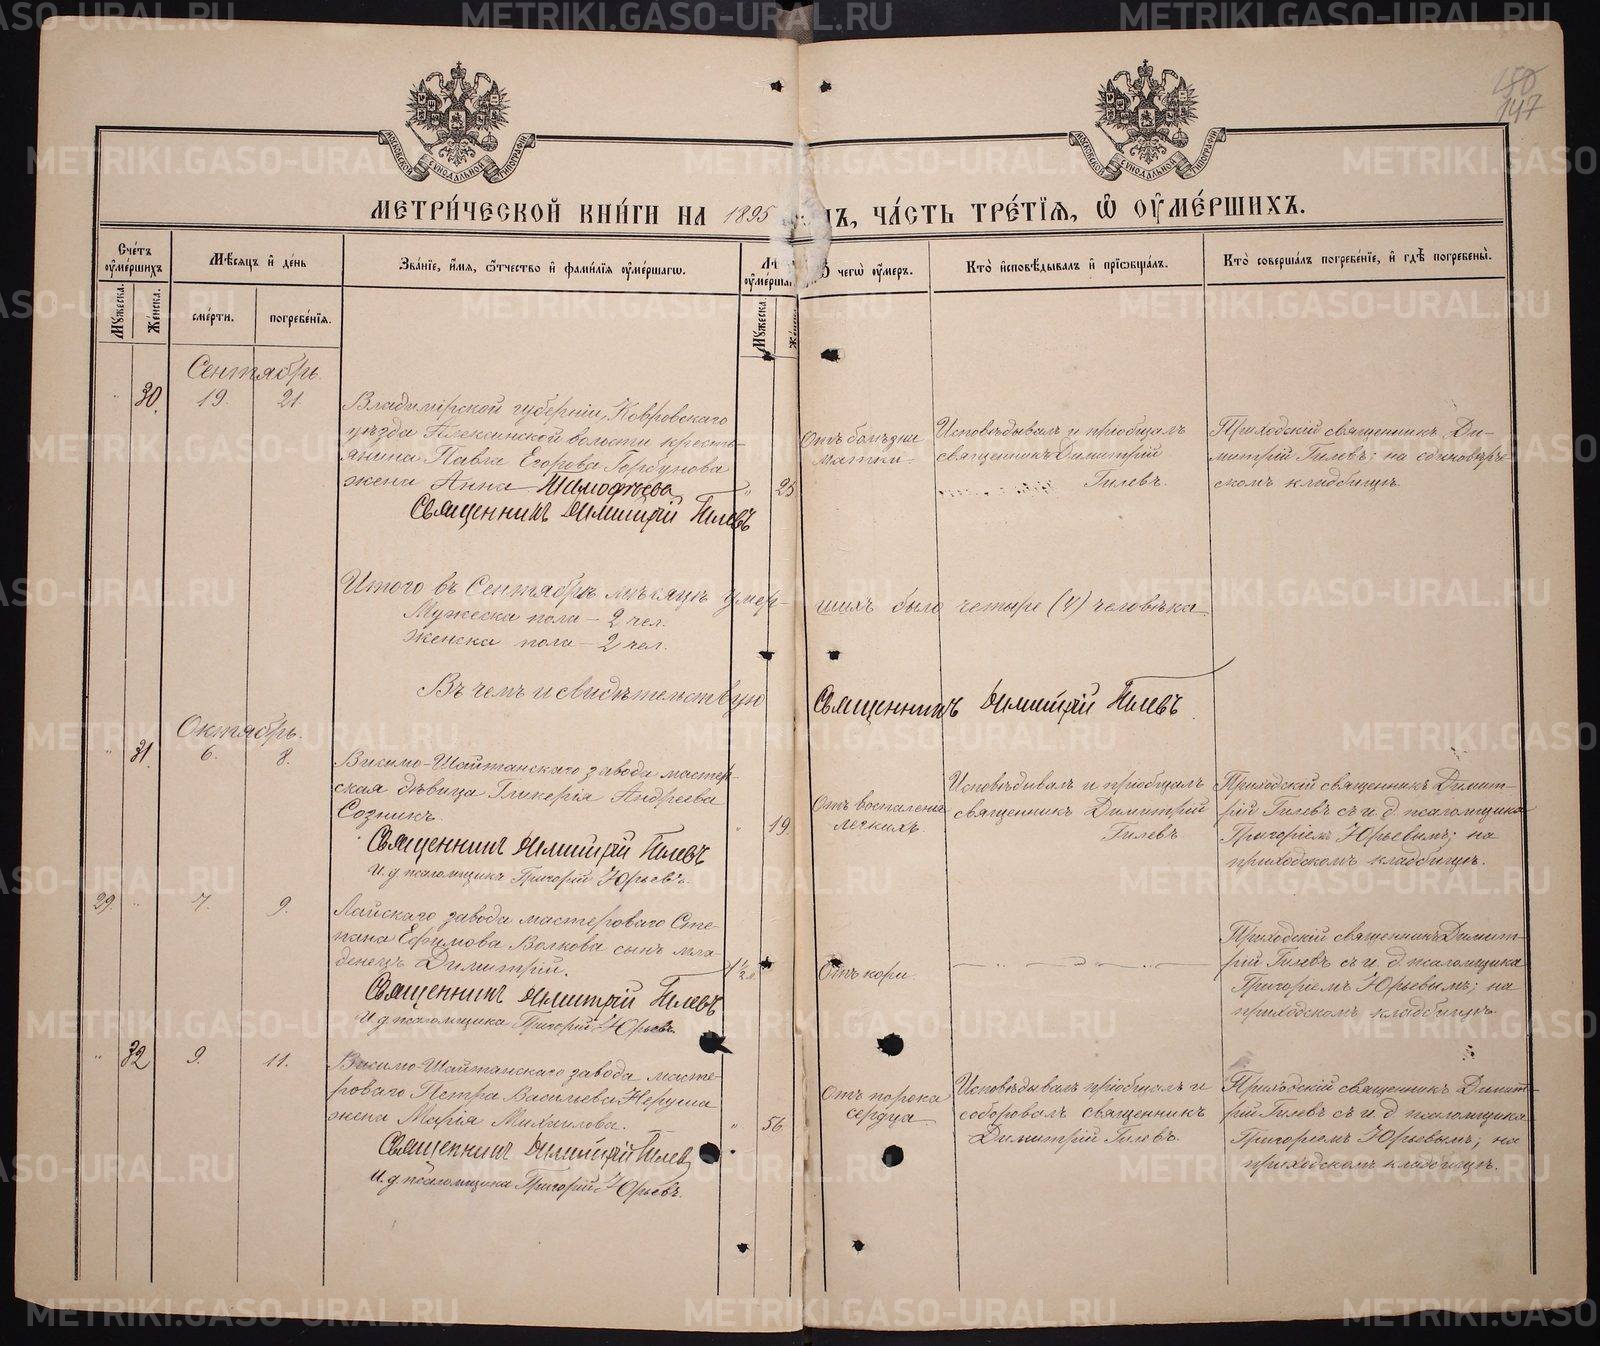 METRIKI.GASO-URAL.RU
150
147
МОСКОВСКОЙ СѴНОДАЛЬНОЙ ТИПОГРАФІИ
МОСКОВСКОЙ СѴНОДАЛЬНОЙ ТИПОГРАФІИ
МЕТРИ́ЧЕСКОЙ КНИ́ГИ НА 1895 ГОДЪ, ЧА́СТЬ ТРЕ́ТІѦ, Ѡ ОУ҆МЕ́РШИХЪ.
Сче́тъ оу҆ме́ршихъ
Мѣ́сѧцъ и҆ де́нь
Зва́ніе, и҆́мѧ, ѻ҆́тчество и҆ фами́лїѧ оу҆ме́ршагѡ.
Лѣ
оу҆ме́рша
Ѿ чегѡ̀ оу҆́меръ.
Кто̀ и҆сповѣ́дывалъ и҆ прїѡбща́лъ.
Кто̀ соверша́лъ погребе́ніе, и҆ гдѣ̀ погребены̀.
Мꙋ́жеска.
Же́нска.
сме́рти.
погребе́нїѧ.
Мꙋ́жеска.
Сентябрь.
" 30. 19. 21.
Владимірской губерніи, Ковровскаго
уѣзда Плексинской волости кресть-
янина Павла Егорова Горбунова
жена Анна Тимофѣева " 25
Священникъ Димитрій Гилевъ
Отъ болѣзни
матки.
Исповѣдывалъ и пріобщалъ
священникъ Димитрій
Гилевъ.
Приходскій священникъ Ди-
митрій Гилевъ; на единовѣрче-
скомъ кладбищѣ.
Итого въ Сентябрѣ мѣсяцѣ умер- шихъ было четыре (4) человѣка
Мужеска пола – 2 чел.
Женска пола – 2 чел.
Въ чемъ и свидѣтельствую Священникъ Димитрій Гилевъ.
Октябрь.
" 31. 6. 8.
Висимо-Шайтанскаго завода мастер-
ская дѣвица Гликерія Андреева
Созникъ. " 19
Священникъ Димитрій Гилевъ
И. д. псаломщика Григорій Юрьевъ.
Отъ воспаленія
легкихъ.
Исповѣдывалъ и пріобщалъ
священникъ Димитрій
Гилевъ.
Приходскій священникъ Димит-
рій Гилевъ съ и. д. псаломщика
Григоріемъ Юрьевымъ; на
приходскомъ кладбищѣ.
29. " 7. 9.
Лайскаго завода мастероваго Сте-
пана Ефимова Волкова сынъ мла-
денецъ Димитрій. 1 1/2
Священникъ Димитрій Гилевъ
И. д. псаломщика Григорій Юрьевъ
Отъ кори.
Приходскій священникъ Димит-
рій Гилевъ съ и. д. псаломщика
Григоріемъ Юрьевымъ; на
приходскомъ кладбищѣ.
" 32 9. 11.
Висимо-Шайтанскаго завода масте-
роваго Петра Васильева Неруша
жена Марія Михаилова. " 56
Священникъ Димитрій Гилевъ
И. д. псаломщика Григорій Юрьевъ.
Отъ порока
сердца.
Исповѣдывалъ пріобщалъ и
соборовалъ священникъ
Димитрій Гилевъ.
Приходскій священникъ Димит-
рій Гилевъ съ и. д. псаломщика
Григоріемъ Юрьевымъ; на
приходскомъ кладбищѣ.